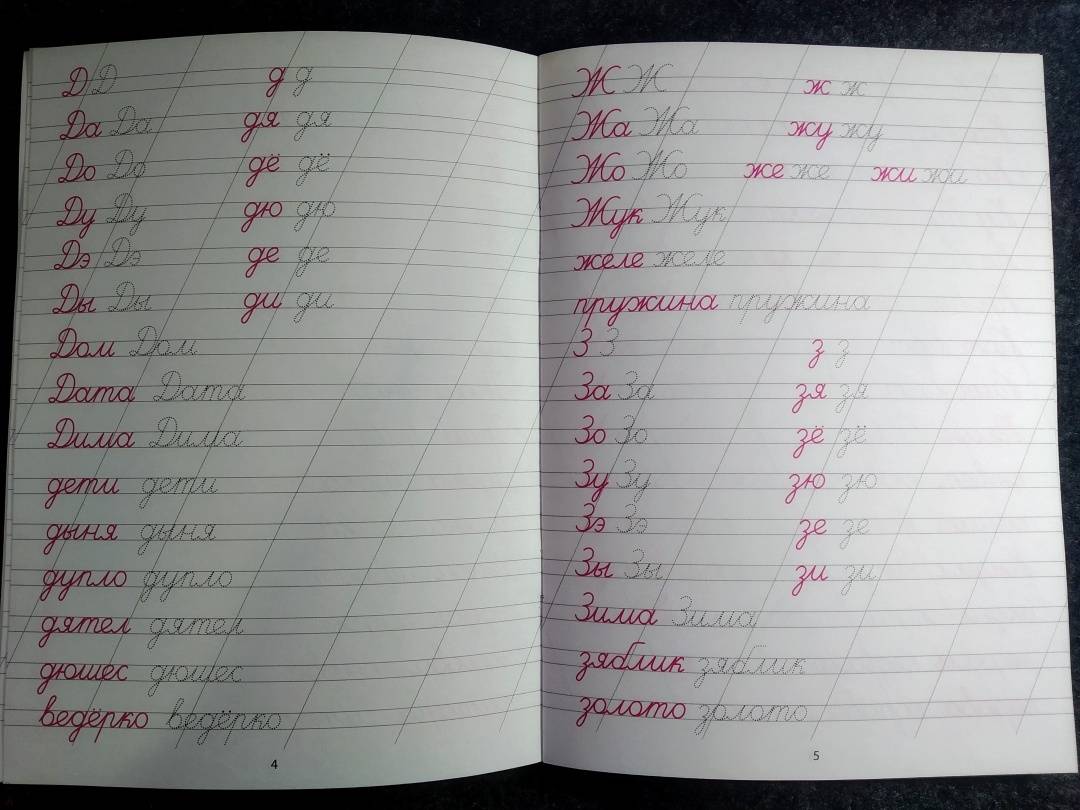 Д Д д д
Да Да дя дя
До До дё дё
Ду Ду дю дю
Дэ Дэ де де
Ды Ды ди ди
Дом Дом
Дата Дата
Дима Дима
дети дети
дыня дыня
дупло дупло
дятел дятел
дюшес дюшес
ведёрко ведёрко
4
Ж Ж ж ж
Жа Жа жу жу
Жо Жо же же жи жи
Жук Жук
желе желе
пружина пружина
З З з з
За За зя зя
Зо Зо зё зё
Зу Зу зю зю
Зэ Зэ зе зе
Зы Зы зи зи
Зима Зима
зяблик зяблик
золото золото
5